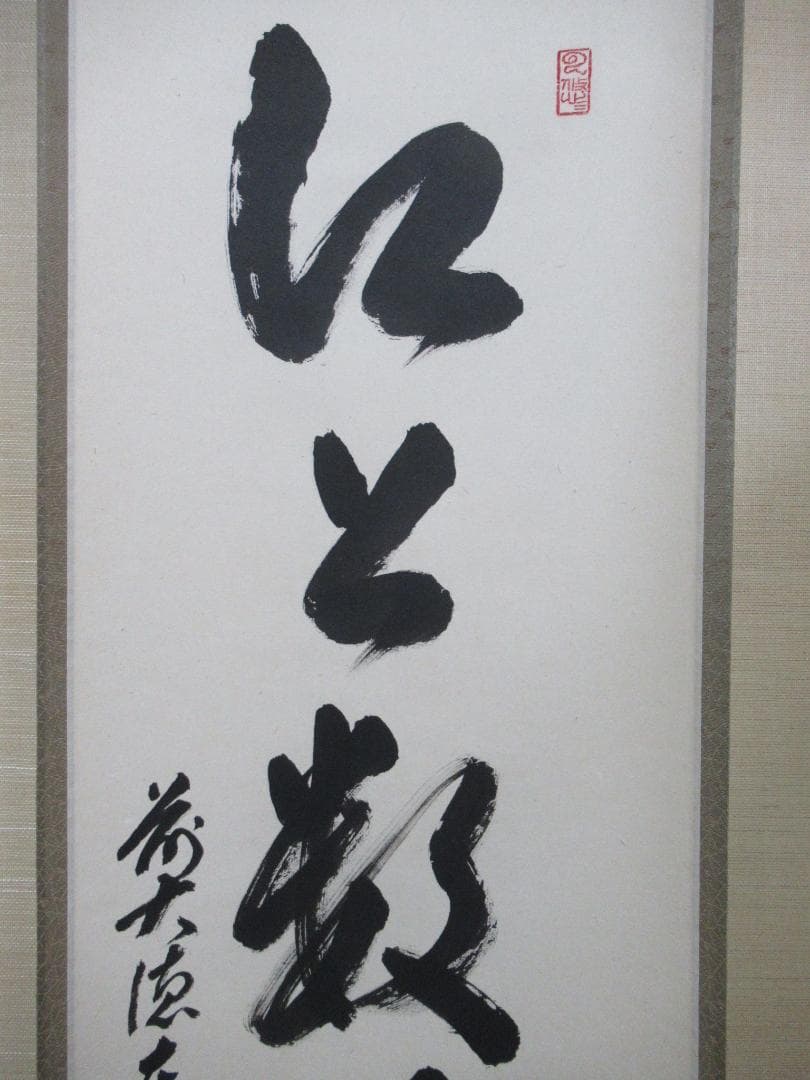 江上数
前大徳